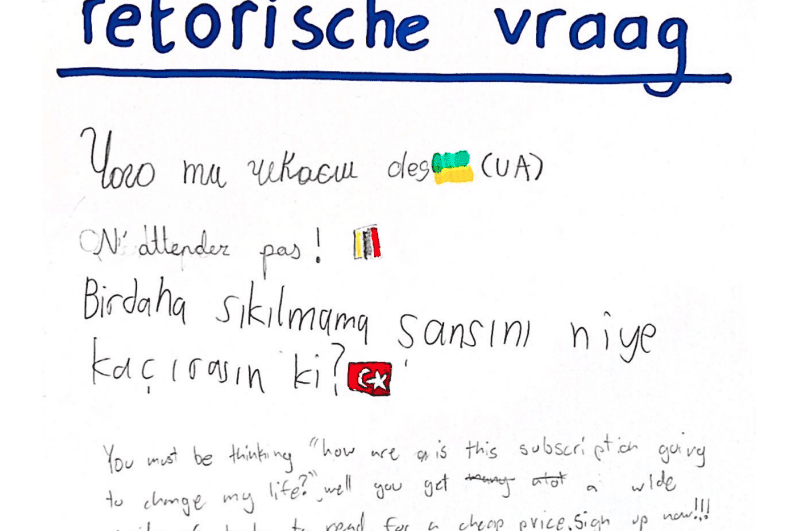 retorische vraag
Чого ти чекаєш des (UA)
N'attender pas!
Birdaha sıkılmama şansını niye
kaçırasın ki?
You must be thinking "how are is this subscription going
to change my life?", well you get many alot a wide
to read for a cheap price. Sign up now!!!